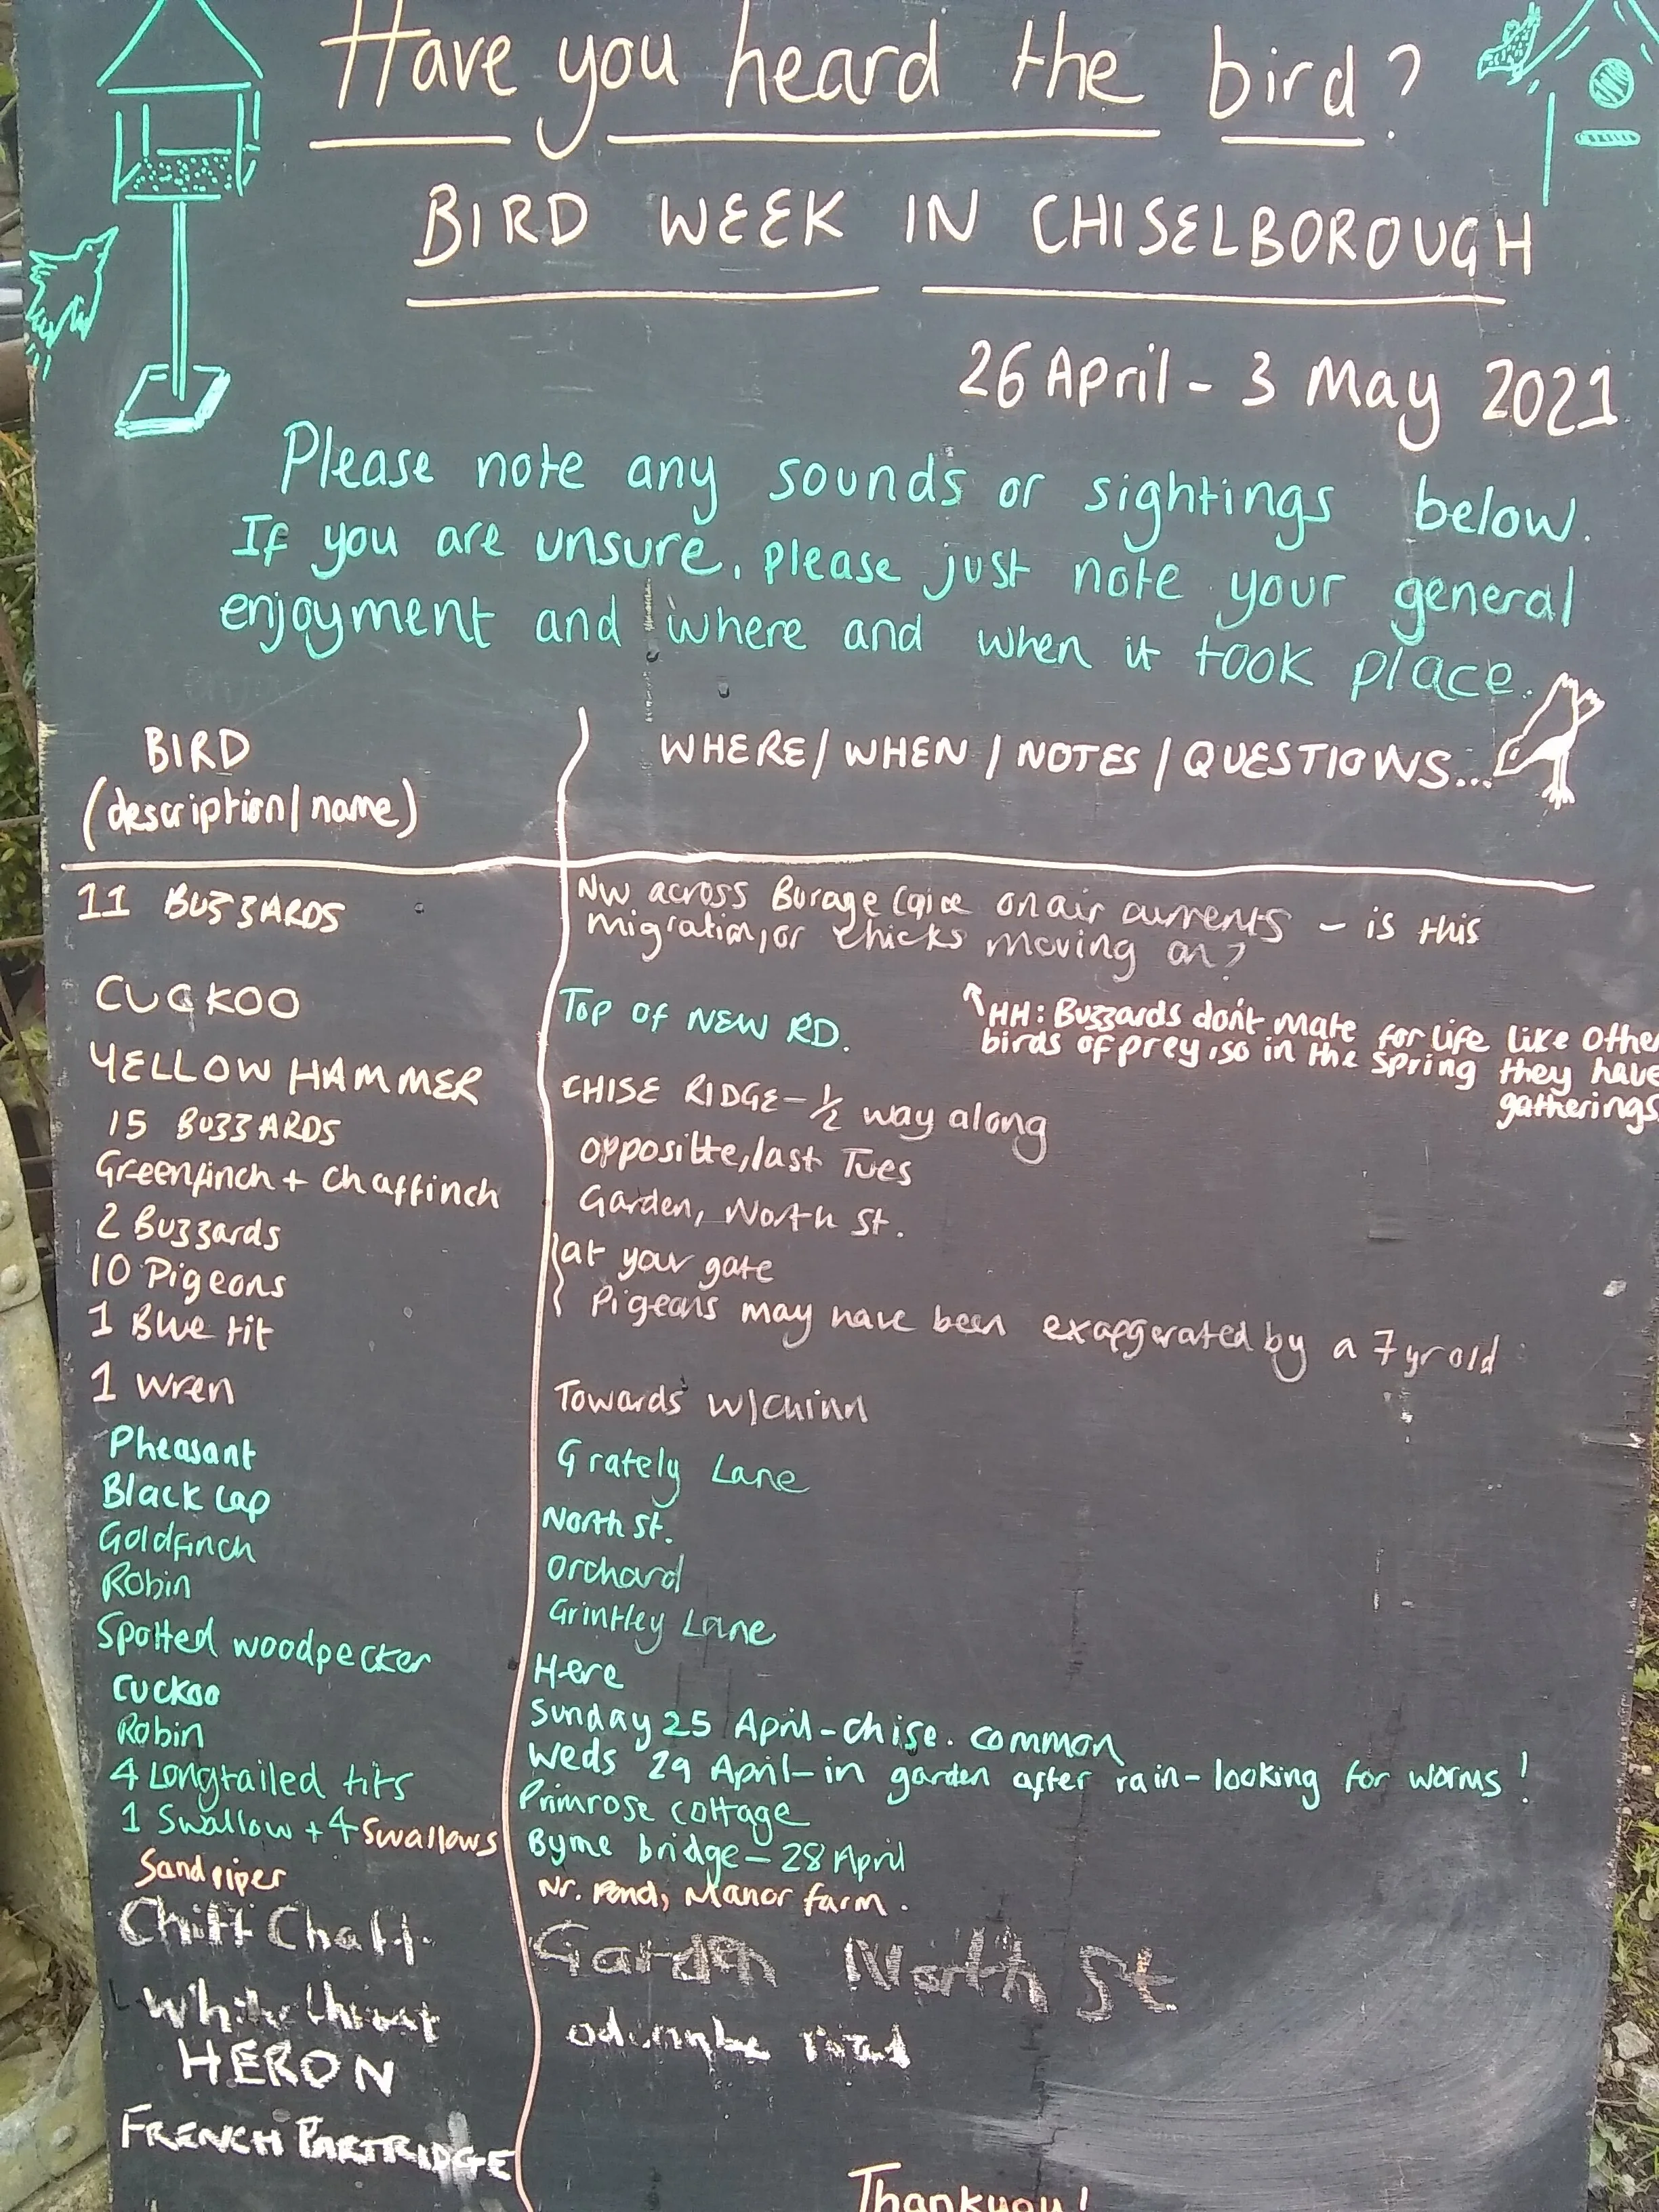 Have you heard the bird?
BIRD WEEK IN CHISELBOROUGH
26 April - 3 May 2021
Please note any sounds or sightings below.
If you are unsure, please just note your general
enjoyment and where and when it took place.
BIRD
(description/name)
WHERE/WHEN/NOTES/QUESTIONS...
11 BUZZARDS
NW across Burage on air currents - is this
migration, or chicks moving on?
CUCKOO
Top of NEW RD.
HH: Buzzards don't mate for life like Othe
birds of prey, so in the spring they have
gatherings
YELLOW HAMMER
CHISE RIDGE - 1/2 way along
15 BUZZARDS
oppositte, last Tues
Greenfinch + Chaffinch
Garden, North St.
2 Buzzards
at your gate
10 Pigeons
Pigeons may have been exaggerated by a 7 yr old
1 Blue tit
1 Wren
Towards W/Chinn
Pheasant
Grately Lane
Black Cap
North St.
Goldfinch
Orchard
Robin
Grintley Lane
Spotted woodpecker
Here
Cuckoo
Sunday 25 April - chise. common
Robin
Weds 29 April - in garden after rain - looking for worms!
4 Longtailed tits
Primrose cottage
1 Swallow + 4 Swallows
Byme bridge - 28 April
Sandpiper
Nr. Pond, Manor farm.
Chiff Chaff
Garden North St
White throat
road
HERON
FRENCH PARTRIDGE
Thankyou!